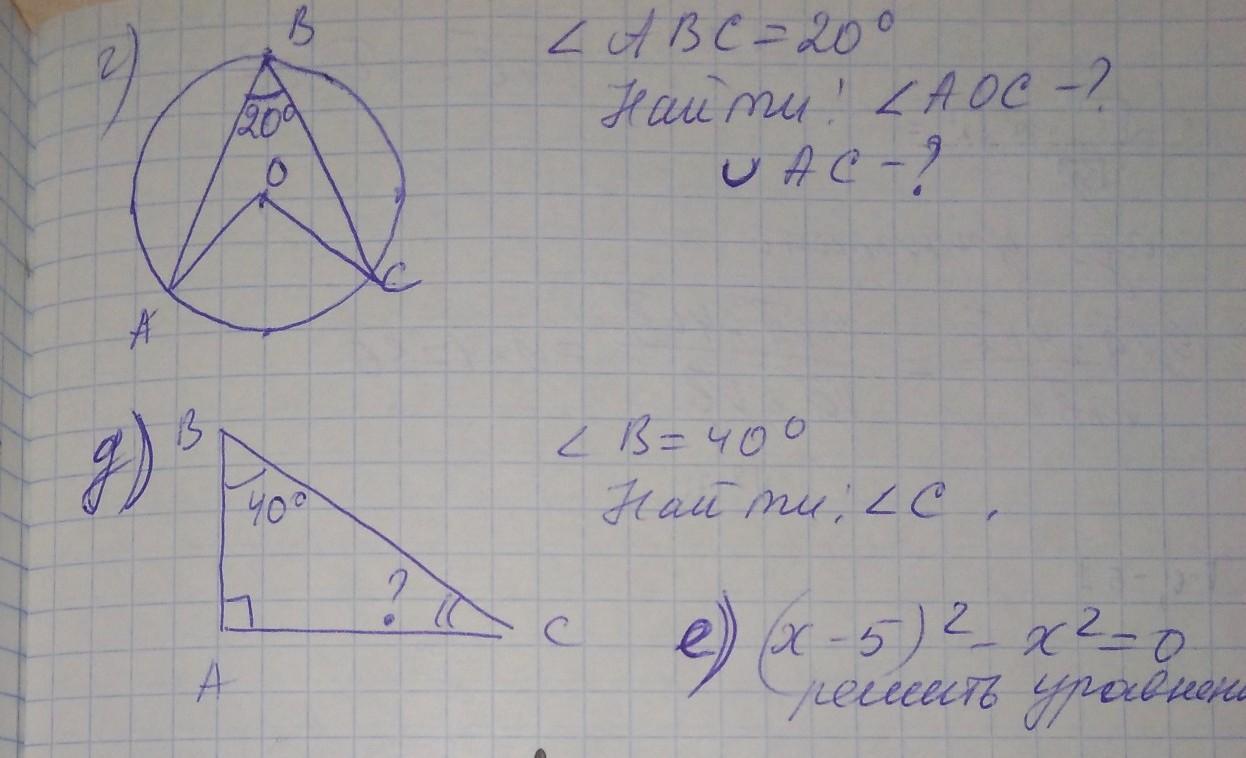 г)
B
20°
O
A
C
∠ABC=20°
Найти: ∠AOC-?
∪AC-?
д)
B
40°
?
A
C
∠B=40°
Найти: ∠C.
е) (x-5)²-x²=0
решить уравнени